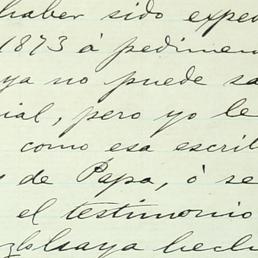 haber sido exped
1873 á pedimen
ya no puede sa
ial, pero yo le
como esa escrit
de Papa, ó se
el testimonio
haya hech